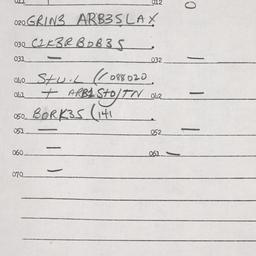 011 012
020 GRIN3 ARB35LAX
030 C1K3RBDB35
031 — 032 —
040 STU.L (1088020
041 + ARB1STO/TN 042 —
050 BORK35 (141
051 — 052 —
060 — 061 —
070 —